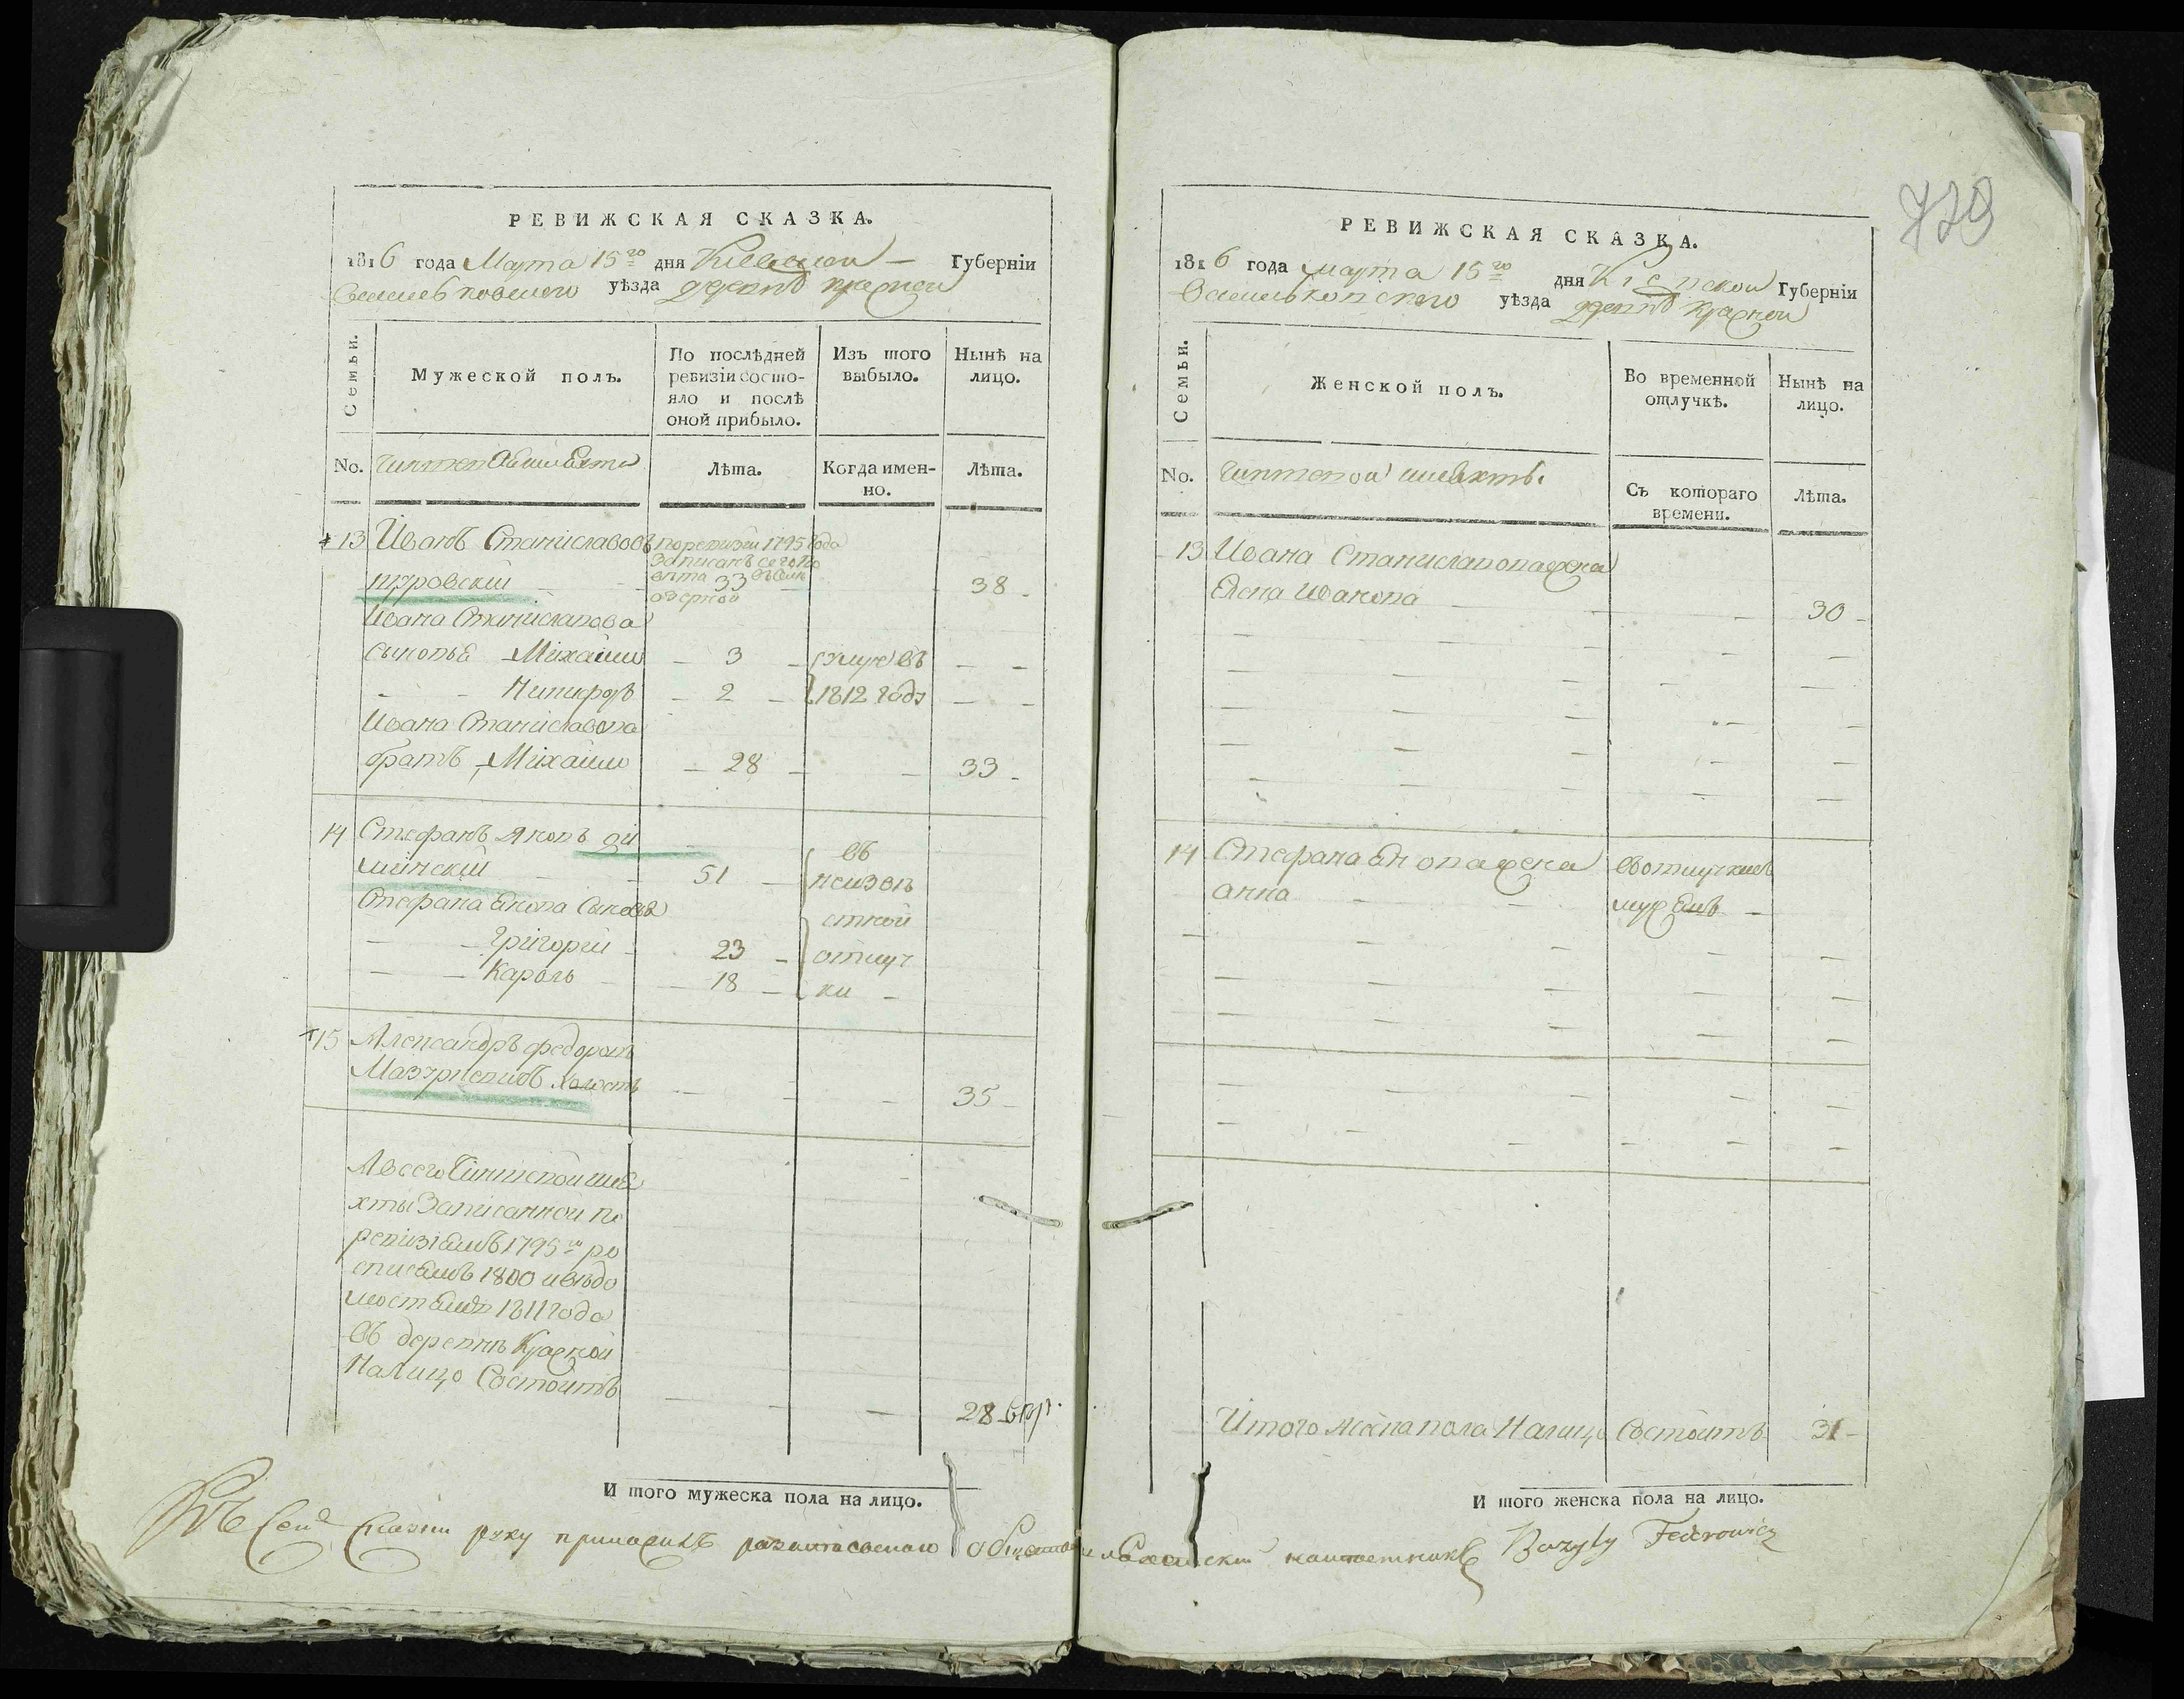 РЕВИЖСКАЯ СКАЗКА.
1816 года Марта 15го дня Киевской Губерніи
Васильковского уѣзда деревнѣ Красной
Семьи.
Мужеской полъ.
По послѣдней ревизіи состояло и послѣ оной прибыло.
Изъ того выбыло.
Нынѣ на лицо.
No.
Лѣта.
Когда именно.
Лѣта.
13 Иванъ Станиславовъ по ревизіи 1795 года
записанъ
33
38
Ивана Станиславова
сыновья Михайло 3 въ
Никифоръ 2 1812 годѣ
Ивана Станиславова
братъ Михайло 28 33
14 Стефанъ Яковъ въ
51 неизвѣ
Стефана Якова сыновья стной
Григорій 23 отлуч
Кароль 18 ки
15 Александръ Федоровъ
холостъ 35
А всего Чиншевой шля
хты Записанной по
ревизіямъ 1795 ро
списямъ 1800 и вѣдо
мостямъ 1811 года
въ деревнѣ Красной
На Лицо Состоитъ
28
И того мужеска пола на лицо.
729
РЕВИЖСКАЯ СКАЗКА.
1816 года марта 15го дня Кіевской Губерніи
Васильковского уѣзда деревнѣ Красной
Семьи.
Женской полъ.
Во временной отлучкѣ.
Нынѣ на лицо.
No. Чиншевой шляхтѣ.
Съ котораго времени.
Лѣта.
13 Ивана Станиславова жена
Елена Иванова 30
14 Стефана Якова жена въ отлучкѣ съ
анна мужемъ
Итого женска пола На лицо Состоитъ 31
И того женска пола на лицо.
Къ Сей Сказки руку приложилъ Bazyly Federowicz